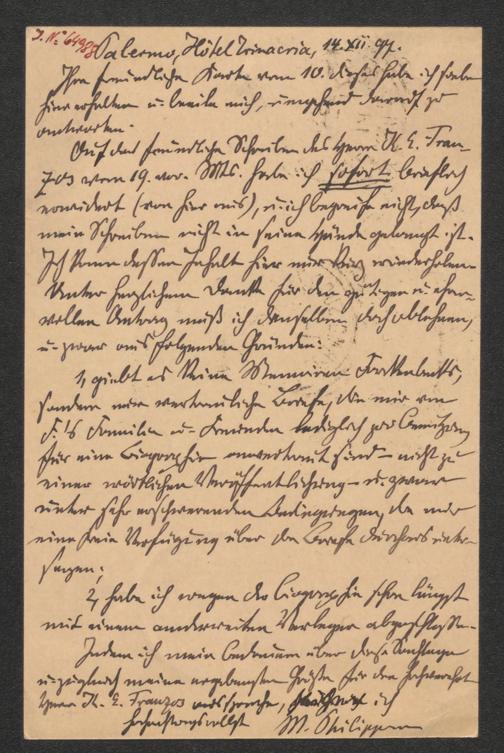 J. No 64988
Palermo, Hôtel Trinacria, 14. XII. 97.
Ihre freundliche Karte vom 10. dieses habe ich soeben
hier erhalten u. beeile mich, umgehend darauf zu
antworten.
Auf das freundliche Schreiben des Herrn K. E. Fran-
zos vom 19. vor. Mts. habe ich sofort brieflich
erwidert (von hier aus), u. ich begreife nicht, daß
mein Schreiben nicht in seine Hände gelangt ist.
Ich kann dessen Inhalt hier nur kurz wiederholen.
Unter herzlichem Danke für den gütigen u. ehren-
vollen Antrag muß ich denselben doch ablehnen,
u. zwar aus folgenden Gründen:
1, giebt es keine Memoiren Forckenbecks,
sondern nur vertrauliche Briefe, die mir von
F.'s Familie u. Freunden lediglich zur Benutzung
für eine Biographie anvertraut sind – nicht zu
einer wörtlichen Veröffentlichung – u. zwar
unter sehr erschwerenden Bedingungen, die mir
eine freie Verfügung über die Briefe durchaus unter-
sagen;
2, habe ich wegen der Biographie schon längst
mit einem anderweiten Verleger abgeschlossen.
Indem ich mein Bedauern über diese Sachlage
u. zugleich meine ergebensten Grüße für den
Herrn K. E. Franzos ausspreche, ich
hochachtungsvollst
M. Philippson